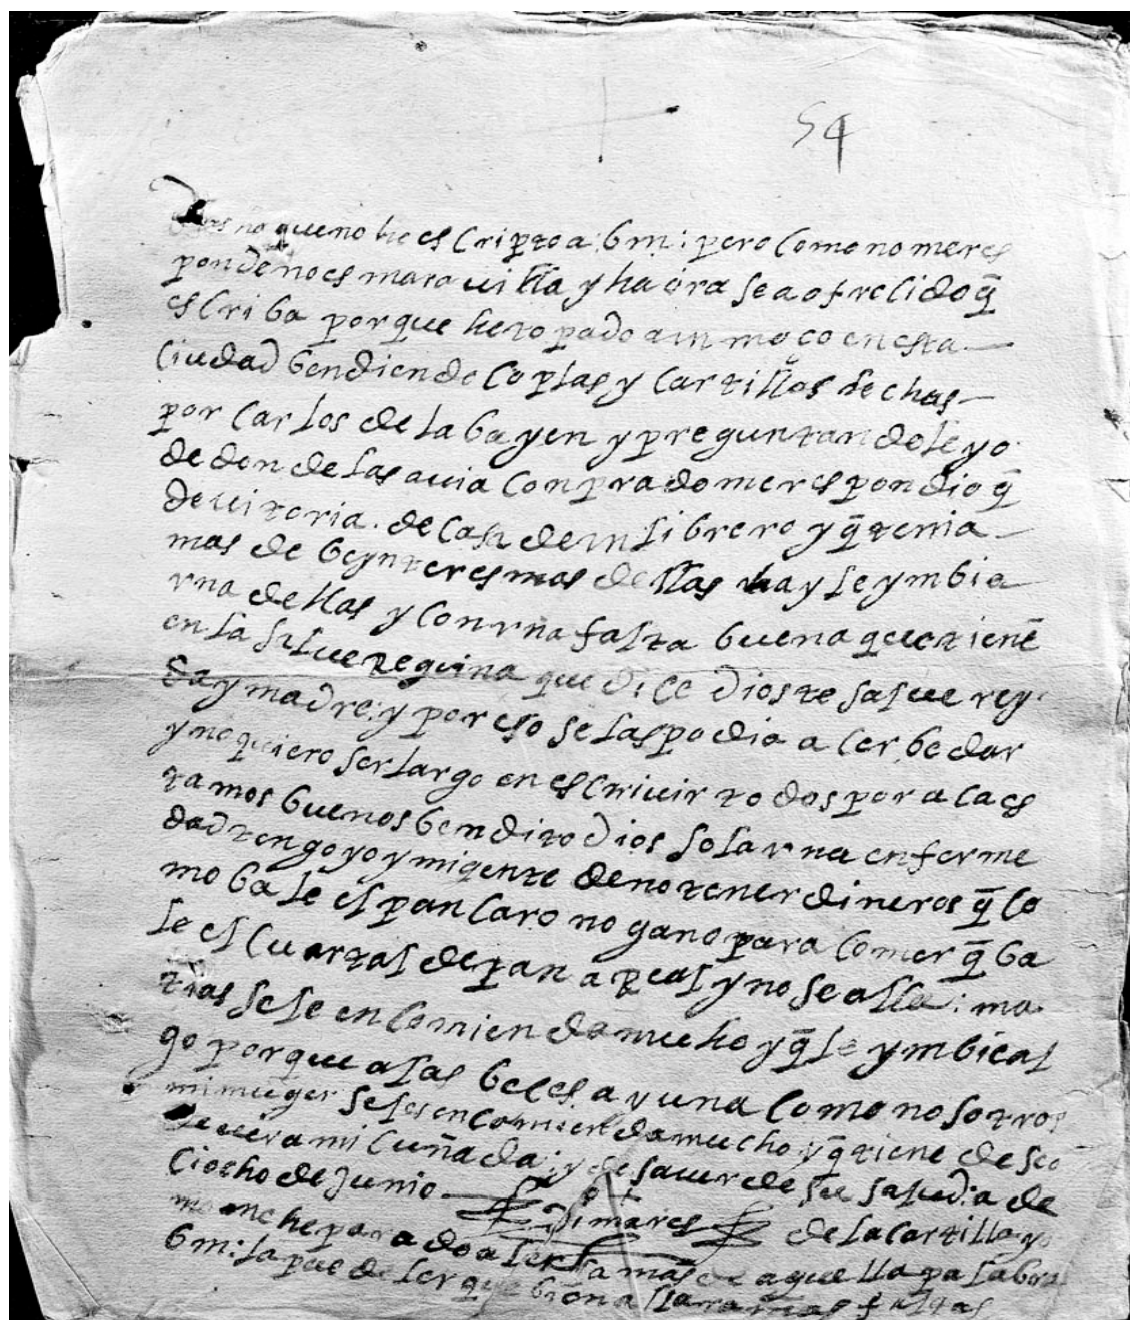 54
que no he escripto a .bm: pero como no me res
ponde no es marauilla y ha óra se a ofrecido q̃
escriba porque he topado a un moço en esta
ciudad bendiendo coplas y cartillas hechas
por carlos de labayen y preguntandole yo
de donde las auia conprado me respondio q̃
de uitoria. de casa de un librero y q̃ tenia
mas de beynte resmas dellas hay le ymbio
vna dellas y con vna falta buena que tiene
en la salue regina que dice dios te salue rey
na y madre: y por eso se las podia acer bedar
y no quiero ser largo en escriuir todos por aca es
tamos buenos bendito dios sola vna enferme
dad tengo yo y mi gente de no tener dineros q̃ co
mo bale el pan caro no gano para comer q̃ ba
le el cuartal de pan a Real y no se alla: ma
tias se le encomienda mucho y q̃ le ymbie al
go porque a las beces ayuna como nosotros
mi muger se les encomienda mucho y q̃ tiene deseo
de uer a mi cuñada: y de sauer de su salud: a de
ciocho de Junio dimares de la cartilla yo
no me he parado a leer mas de aquella palabra
bm: la puede leer que allara mas faltas